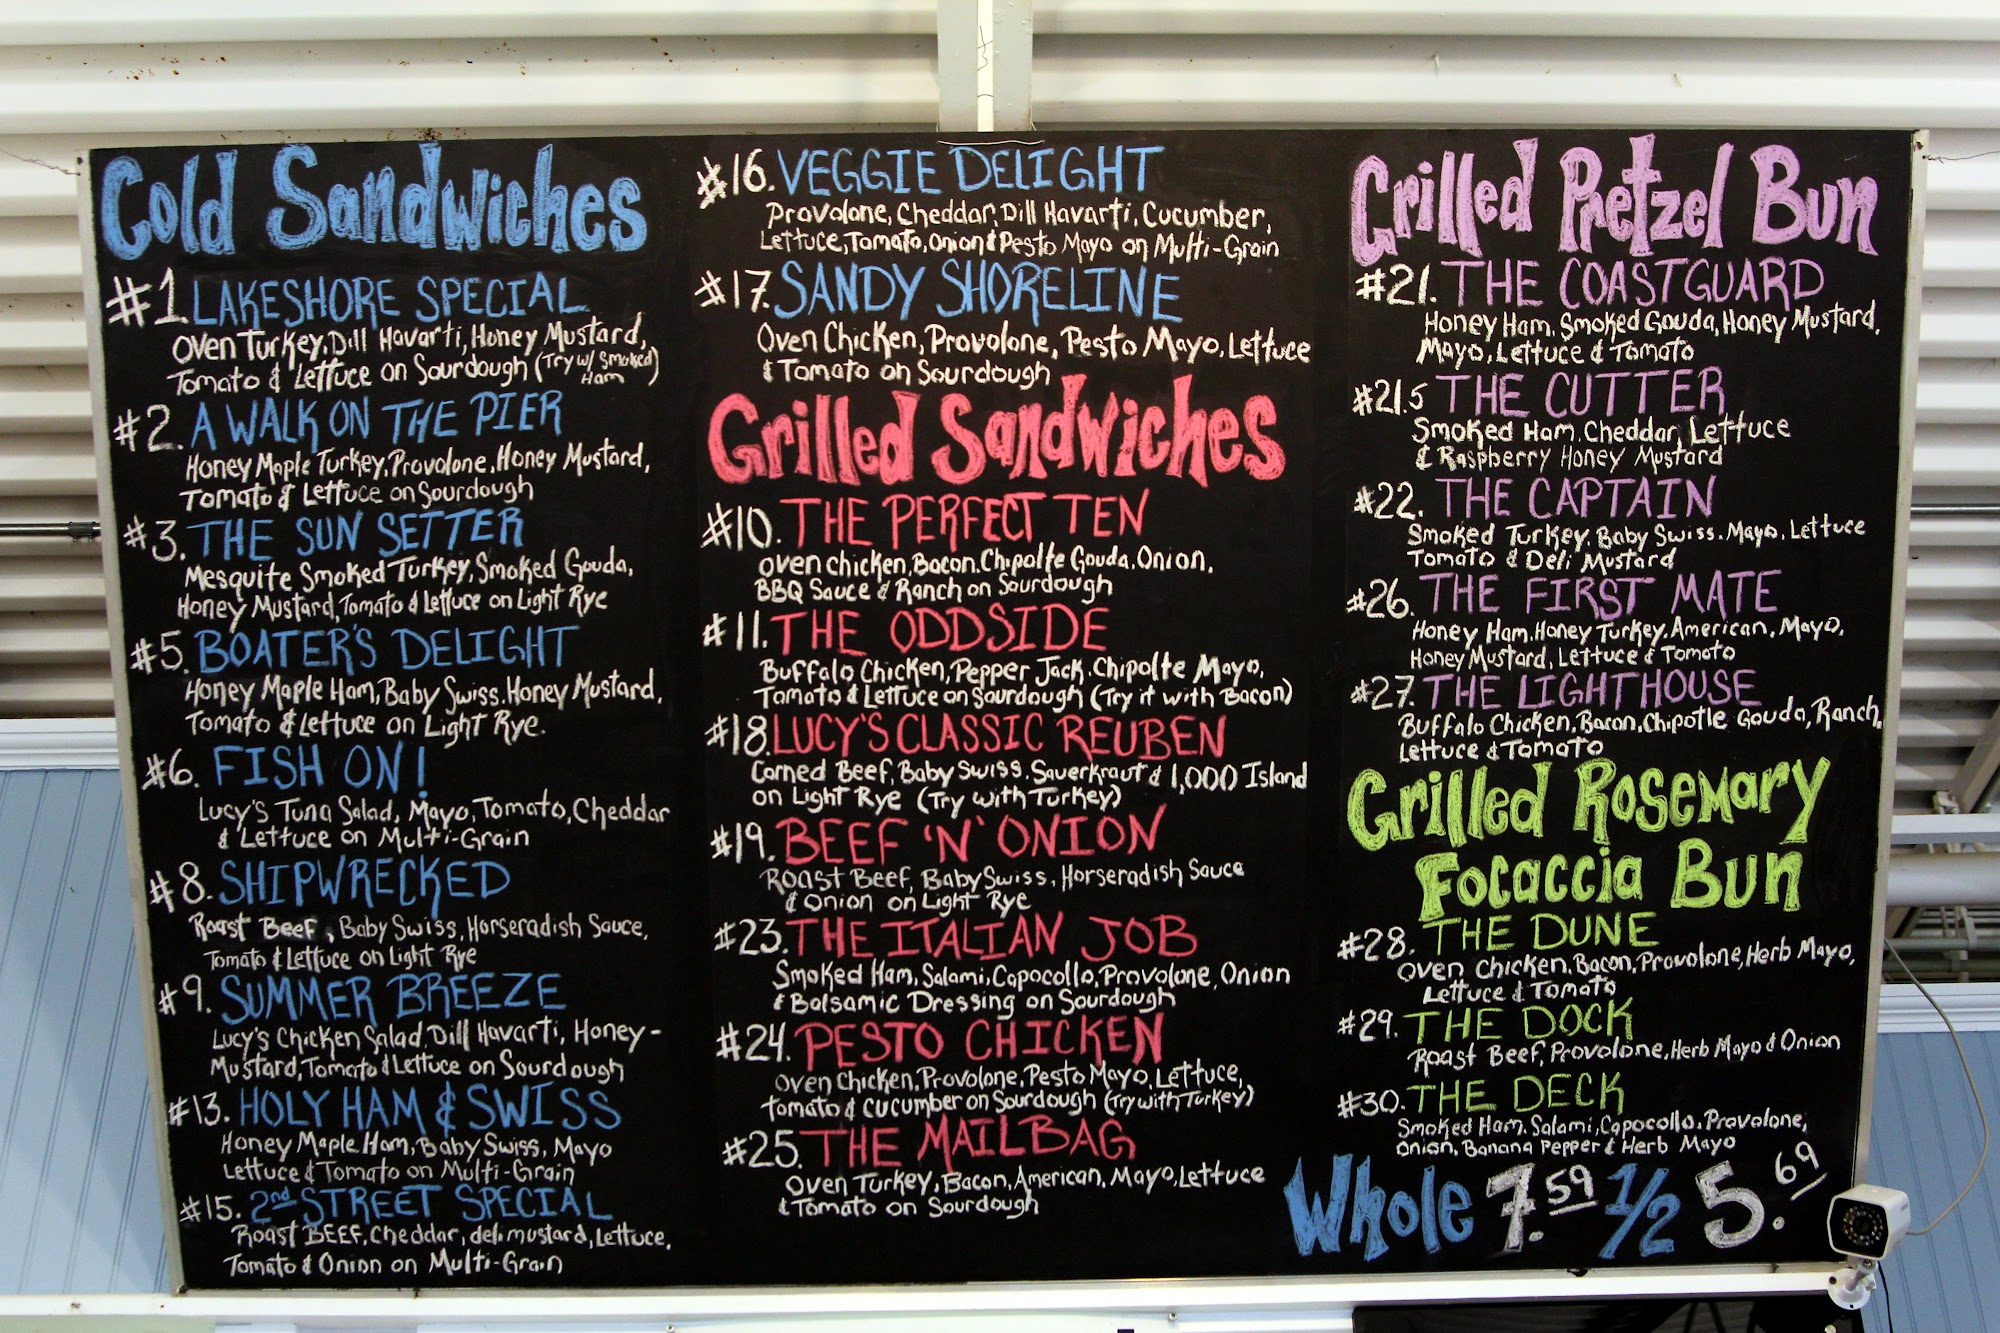 Cold Sandwiches
#1. LAKESHORE SPECIAL
Oven Turkey, Dill Havarti, Honey Mustard,
Tomato & Lettuce on Sourdough (Try w/ Smoked Ham)
#2. A WALK ON THE PIER
Honey Maple Turkey, Provolone, Honey Mustard,
Tomato & Lettuce on Sourdough
#3. THE SUN SETTER
Mesquite Smoked Turkey, Smoked Gouda,
Honey Mustard, Tomato & Lettuce on Light Rye
#5. BOATER'S DELIGHT
Honey Maple Ham, Baby Swiss, Honey Mustard,
Tomato & Lettuce on Light Rye.
#6. FISH ON!
Lucy's Tuna Salad, Mayo, Tomato, Cheddar
& Lettuce on Multi-Grain
#8. SHIPWRECKED
Roast Beef, Baby Swiss, Horseradish Sauce,
Tomato & Lettuce on Light Rye
#9. SUMMER BREEZE
Lucy's Chicken Salad, Dill Havarti, Honey-
Mustard, Tomato & Lettuce on Sourdough
#13. HOLY HAM & SWISS
Honey Maple Ham, Baby Swiss, Mayo
Lettuce & Tomato on Multi-Grain
#15. 2nd STREET SPECIAL
Roast BEEF, Cheddar, deli mustard, Lettuce,
Tomato & Onion on Multi-Grain
#16. VEGGIE DELIGHT
Provolone, Cheddar, Dill Havarti, Cucumber,
Lettuce, Tomato, Onion & Pesto Mayo on Multi-Grain
#17. SANDY SHORELINE
Oven Chicken, Provolone, Pesto Mayo, Lettuce
& Tomato on Sourdough
Grilled Sandwiches
#10. THE PERFECT TEN
Oven Chicken, Bacon, Chipolte Gouda, Onion,
BBQ Sauce & Ranch on Sourdough
#11. THE ODDSIDE
Buffalo Chicken, Pepper Jack, Chipolte Mayo,
Tomato & Lettuce on Sourdough (Try it with Bacon)
#18. LUCY'S CLASSIC REUBEN
Corned Beef, Baby Swiss, Sauerkraut & 1,000 Island
on Light Rye (Try with Turkey)
#19. BEEF 'N' ONION
Roast Beef, Baby Swiss, Horseradish Sauce
& Onion on Light Rye
#23. THE ITALIAN JOB
Smoked Ham, Salami, Capocollo, Provolone, Onion
& Balsamic Dressing on Sourdough
#24. PESTO CHICKEN
Oven Chicken, Provolone, Pesto Mayo, Lettuce,
tomato & cucumber on Sourdough (Try with Turkey)
#25. THE MAILBAG
Oven Turkey, Bacon, American, Mayo, Lettuce
& Tomato on Sourdough
Grilled Pretzel Bun
#21. THE COASTGUARD
Honey Ham, Smoked Gouda, Honey Mustard,
Mayo, Lettuce & Tomato
#21.5 THE CUTTER
Smoked Ham, Cheddar, Lettuce
& Raspberry Honey Mustard
#22. THE CAPTAIN
Smoked Turkey, Baby Swiss, Mayo, Lettuce
Tomato & Deli Mustard
#26. THE FIRST MATE
Honey Ham, Honey Turkey, American, Mayo,
Honey Mustard, Lettuce & Tomato
#27. THE LIGHTHOUSE
Buffalo Chicken, Bacon, Chipotle Gouda, Ranch,
Lettuce & Tomato
Grilled Rosemary
Focaccia Bun
#28. THE DUNE
Oven Chicken, Bacon, Provolone, Herb Mayo,
Lettuce & Tomato
#29. THE DOCK
Roast Beef, Provolone, Herb Mayo & Onion
#30. THE DECK
Smoked Ham, Salami, Capocollo, Provolone,
Onion, Banana Pepper & Herb Mayo
Whole 7.59 1/2 5.69